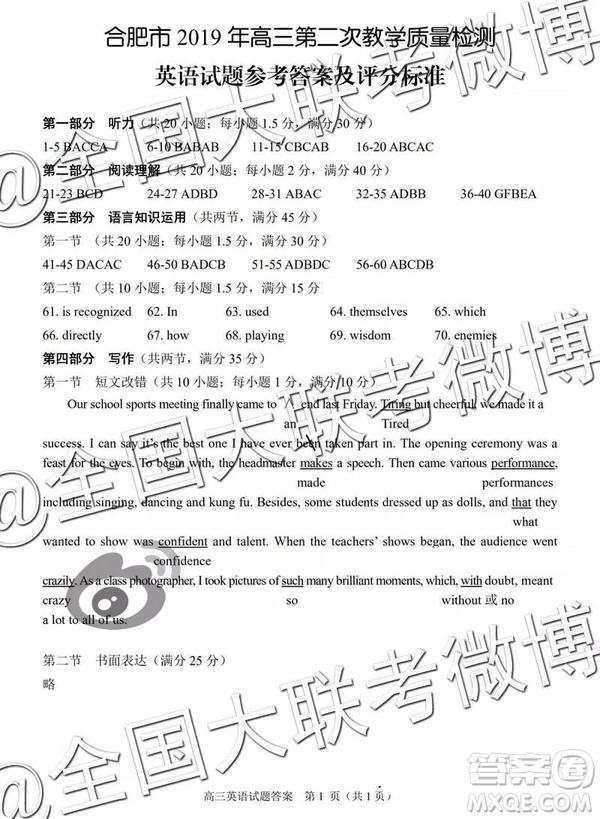 合肥市 2019 年高三第二次教学质量检测
英语试题参考答案及评分标准
第一部分 听力（共 20 小题；每小题 1.5 分，满分 30 分）
1-5 BACCA 6-10 BABAB 11-15 CBCAB 16-20 ABCAC
第二部分 阅读理解（共 20 小题；每小题 2 分，满分 40 分）
21-23 BCD 24-27 ADBD 28-31 ABAC 32-35 ADBB 36-40 GFBEA
第三部分 语言知识运用（共两节，满分 45 分）
第一节 （共 20 小题；每小题 1.5 分，满分 30 分）
41-45 DACAC 46-50 BADCB 51-55 ADBDC 56-60 ABCDB
第二节 （共 10 小题；每小题 1.5 分，满分 15 分
61. is recognized 62. In 63. used 64. themselves 65. which
66. directly 67. how 68. playing 69. wisdom 70. enemies
第四部分 写作（共两节，满分 35 分）
第一节 短文改错（共 10 小题；每小题 1 分，满分 10 分）
Our school sports meeting finally came to /\ end last Friday. Tiring but cheerful, we made it a
an Tired
success. I can say it's the best one I have ever been taken part in. The opening ceremony was a
feast for the eyes. To begin with, the headmaster makes a speech. Then came various performance,
made performances
including singing, dancing and kung fu. Besides, some students dressed up as dolls, and that they
what
wanted to show was confident and talent. When the teachers' shows began, the audience went
confidence
crazily. As a class photographer, I took pictures of such many brilliant moments, which, with doubt, meant
crazy so without 或 no
a lot to all of us.
第二节 书面表达（满分 25 分）
略
高三英语试题答案 第 1 页（共 1 页）
@全国大联考微博
@全国大联考微博
@全国大联考微博
答案圈
MXEQE.COM